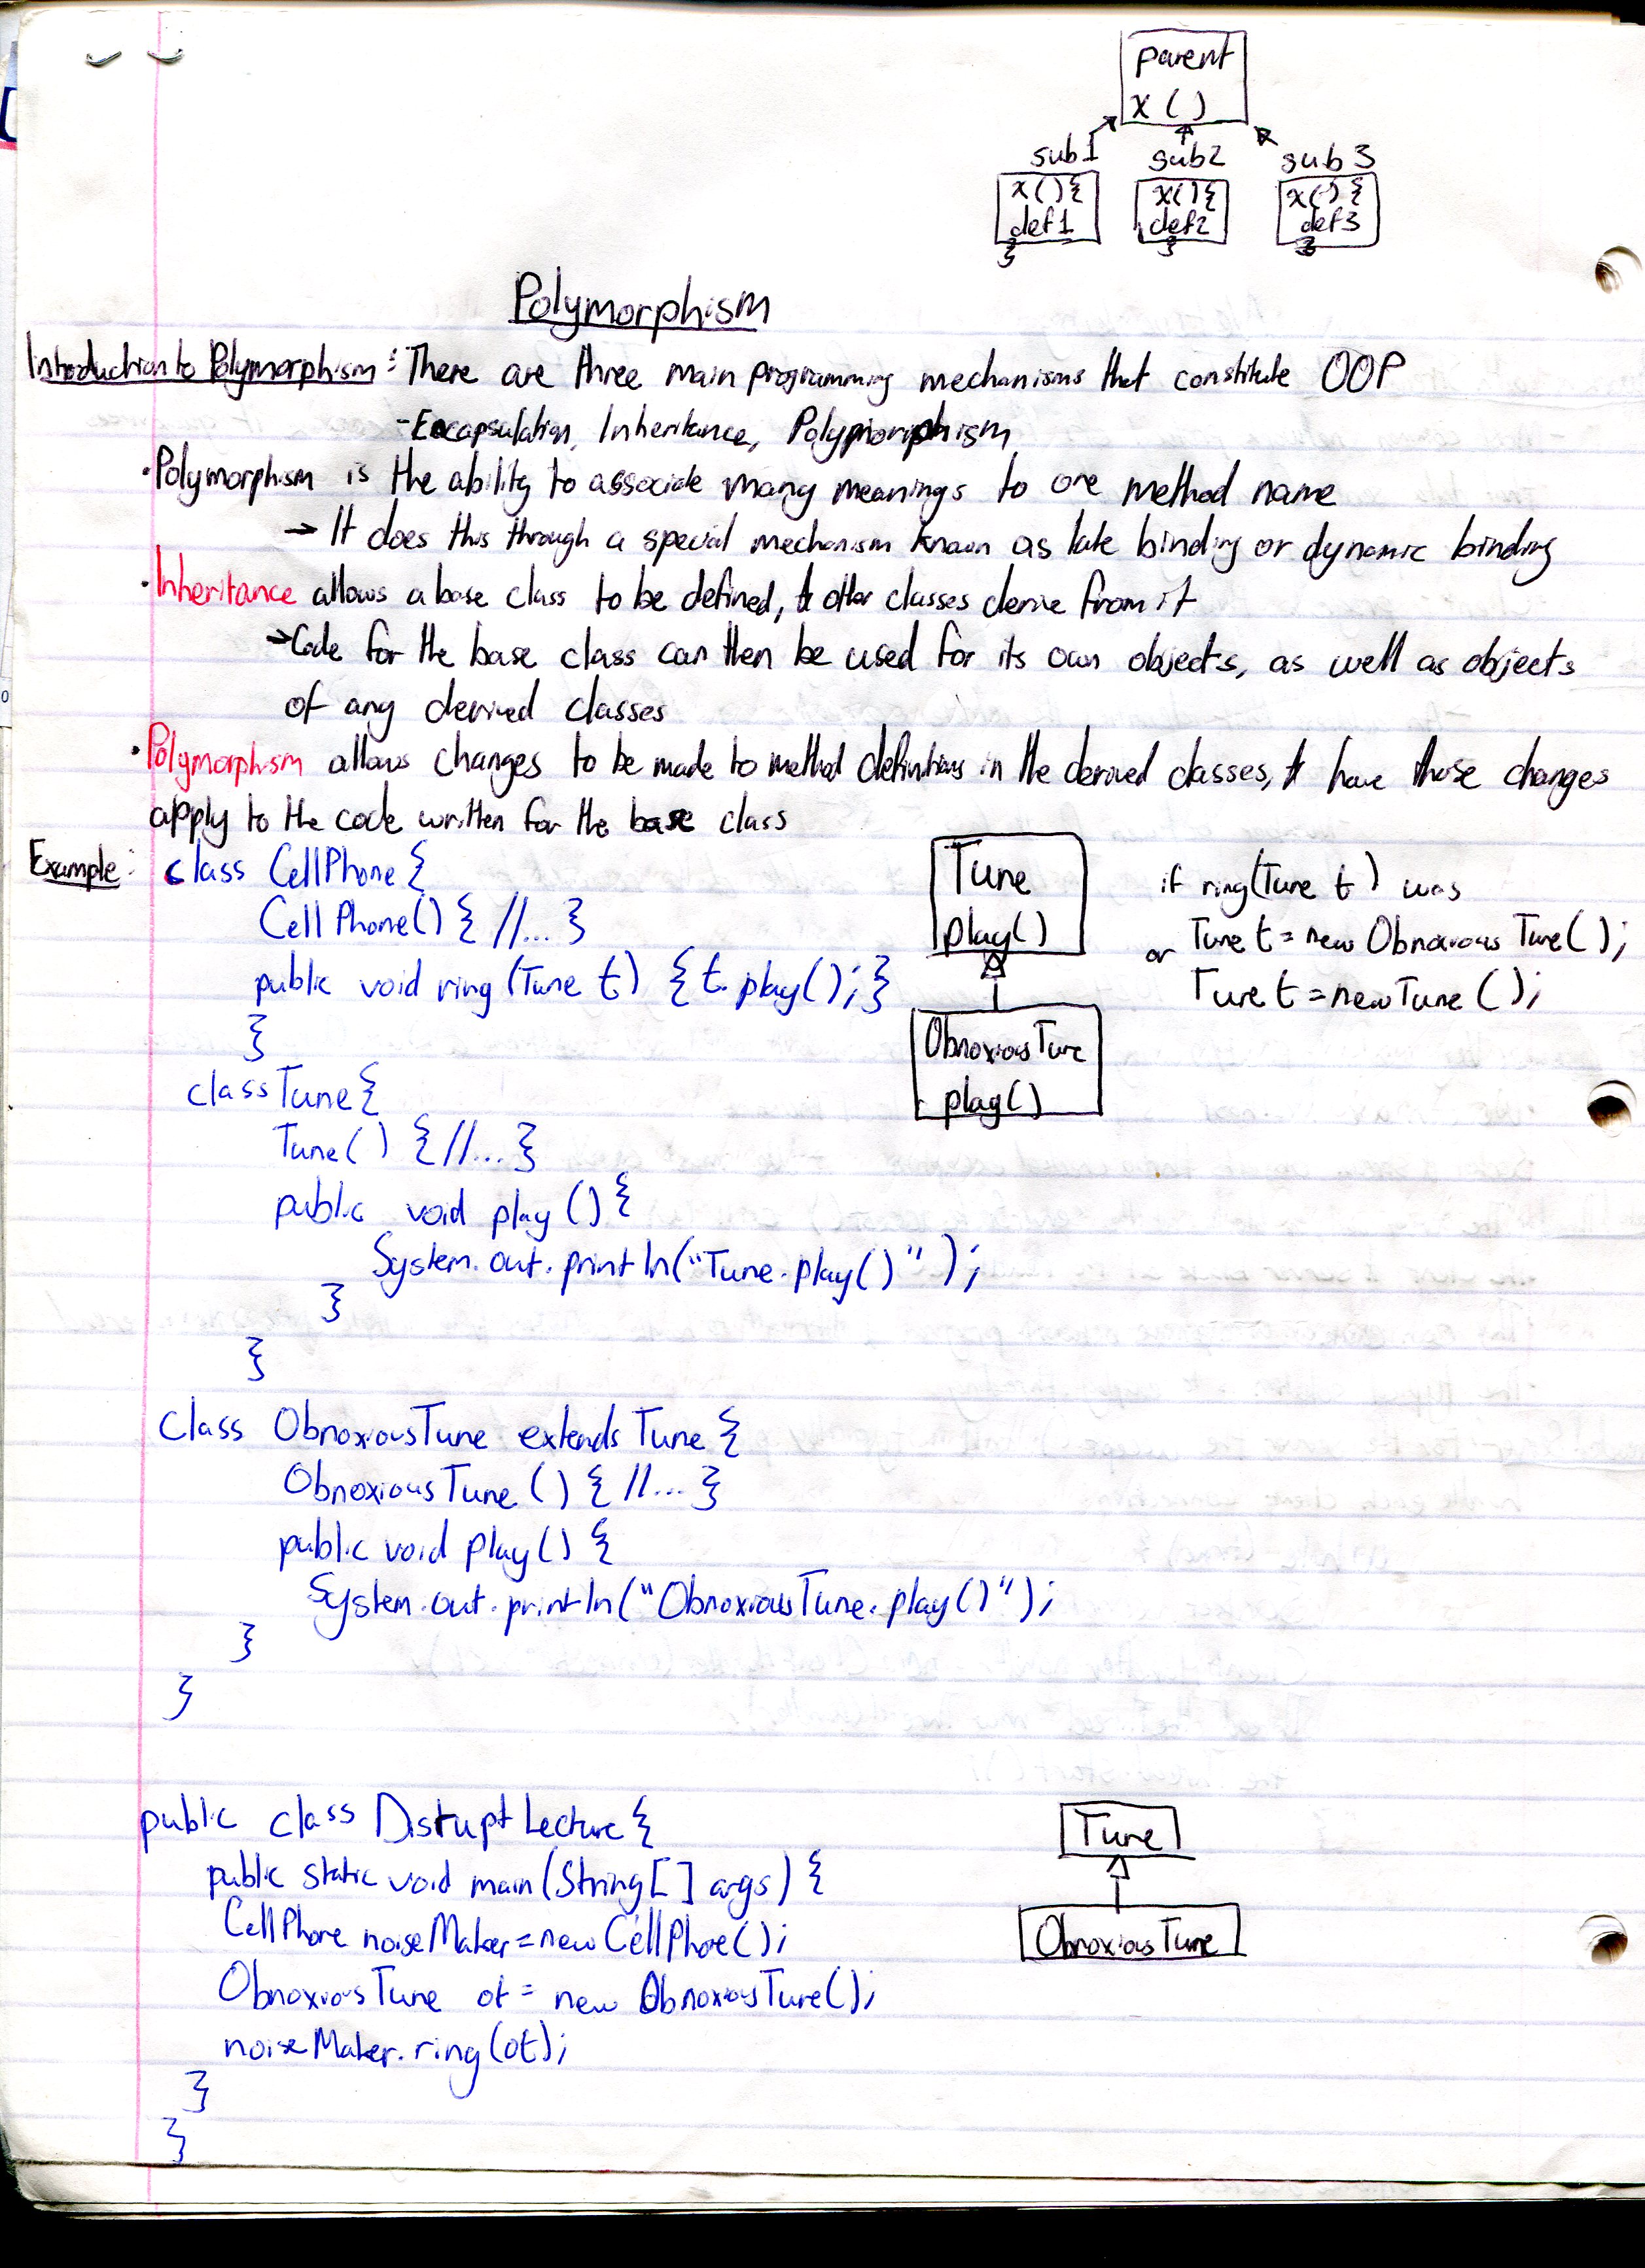 parent
x ( )
sub1 sub2 sub3
x(){ x(){ x(){
def1 def2 def3
} } }
Polymorphism
Introduction to Polymorphism: There are three main programming mechanisms that constitute OOP
- Encapsulation, Inheritance, Polymorphism
• Polymorphism is the ability to associate many meanings to one method name
→ It does this through a special mechanism known as late binding or dynamic binding
• Inheritance allows a base class to be defined, & other classes derive from it
→ Code for the base class can then be used for its own objects, as well as objects
of any derived classes
• Polymorphism allows changes to be made to method definitions in the derived classes, & have those changes
apply to the code written for the base class
Example: class CellPhone {
CellPhone() { //... }
public void ring (Tune t) { t.play(); }
}
Tune
play()
ObnoxiousTune
play()
if ring(Tune t) was
Tune t = new ObnoxiousTune();
or Tune t = new Tune();
class Tune {
Tune() { //... }
public void play () {
System.out.println("Tune.play()");
}
}
class ObnoxiousTune extends Tune {
ObnoxiousTune () { //... }
public void play() {
System.out.println("ObnoxiousTune.play()");
}
}
public class DisruptLecture {
public static void main(String[] args) {
CellPhone noiseMaker = new CellPhone();
ObnoxiousTune ot = new ObnoxiousTune();
noiseMaker.ring(ot);
}
}
Tune
ObnoxiousTune